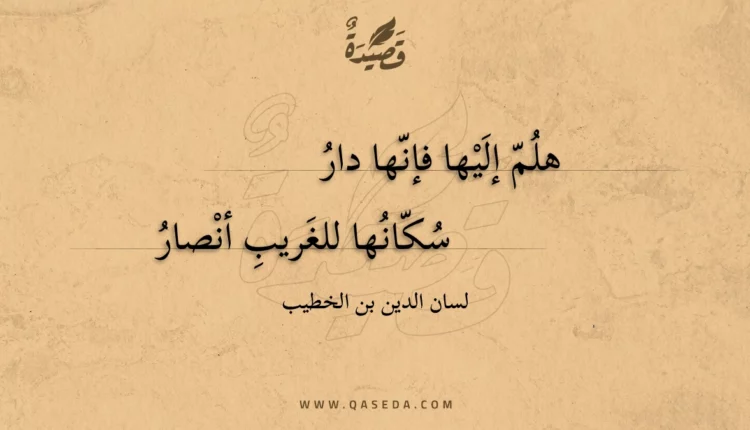 قَصِيدَةٌ
هلُمّ إلَيْها فإنّها دارُ
سُكّانُها للغَريبِ أنْصارُ
لسان الدين بن الخطيب
WWW.QASEDA.COM